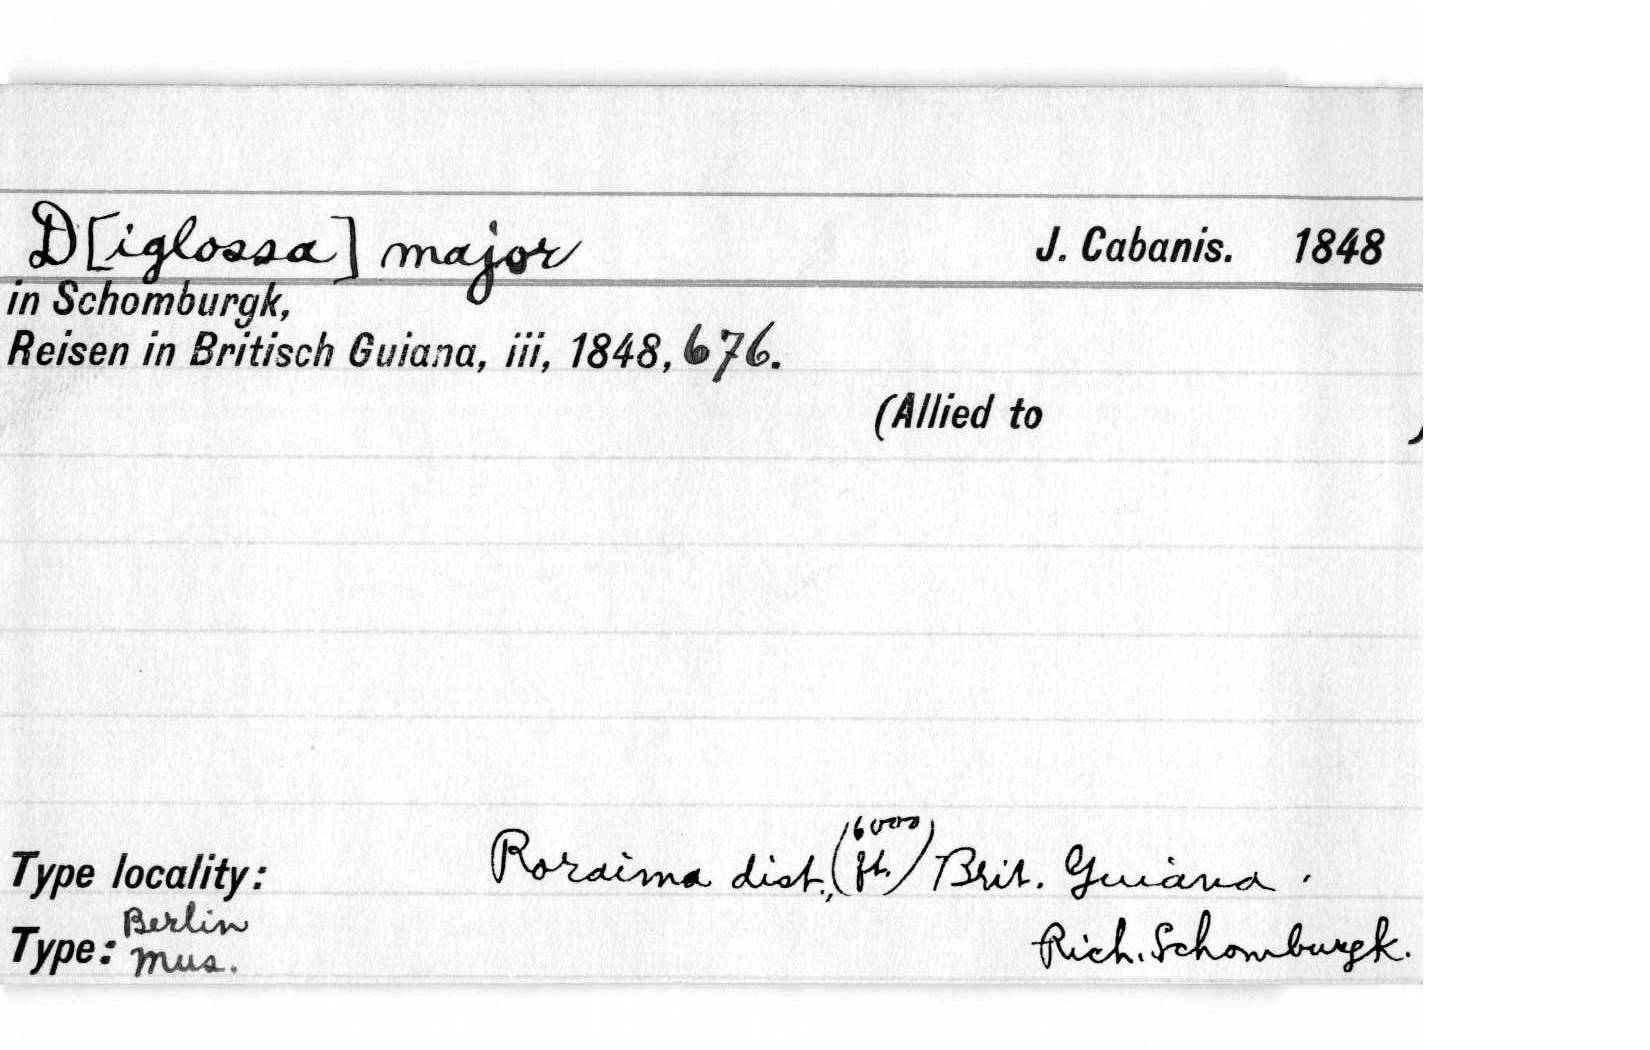 D[iglossa] major J. Cabanis. 1848
in Schomburgk,
Reisen in Britisch Guiana, iii, 1848, 676.
(Allied to )
Type locality: Roraima dist., (6000 ft.) Brit. Guiana.
Type: Berlin Mus. Rich. Schomburgk.